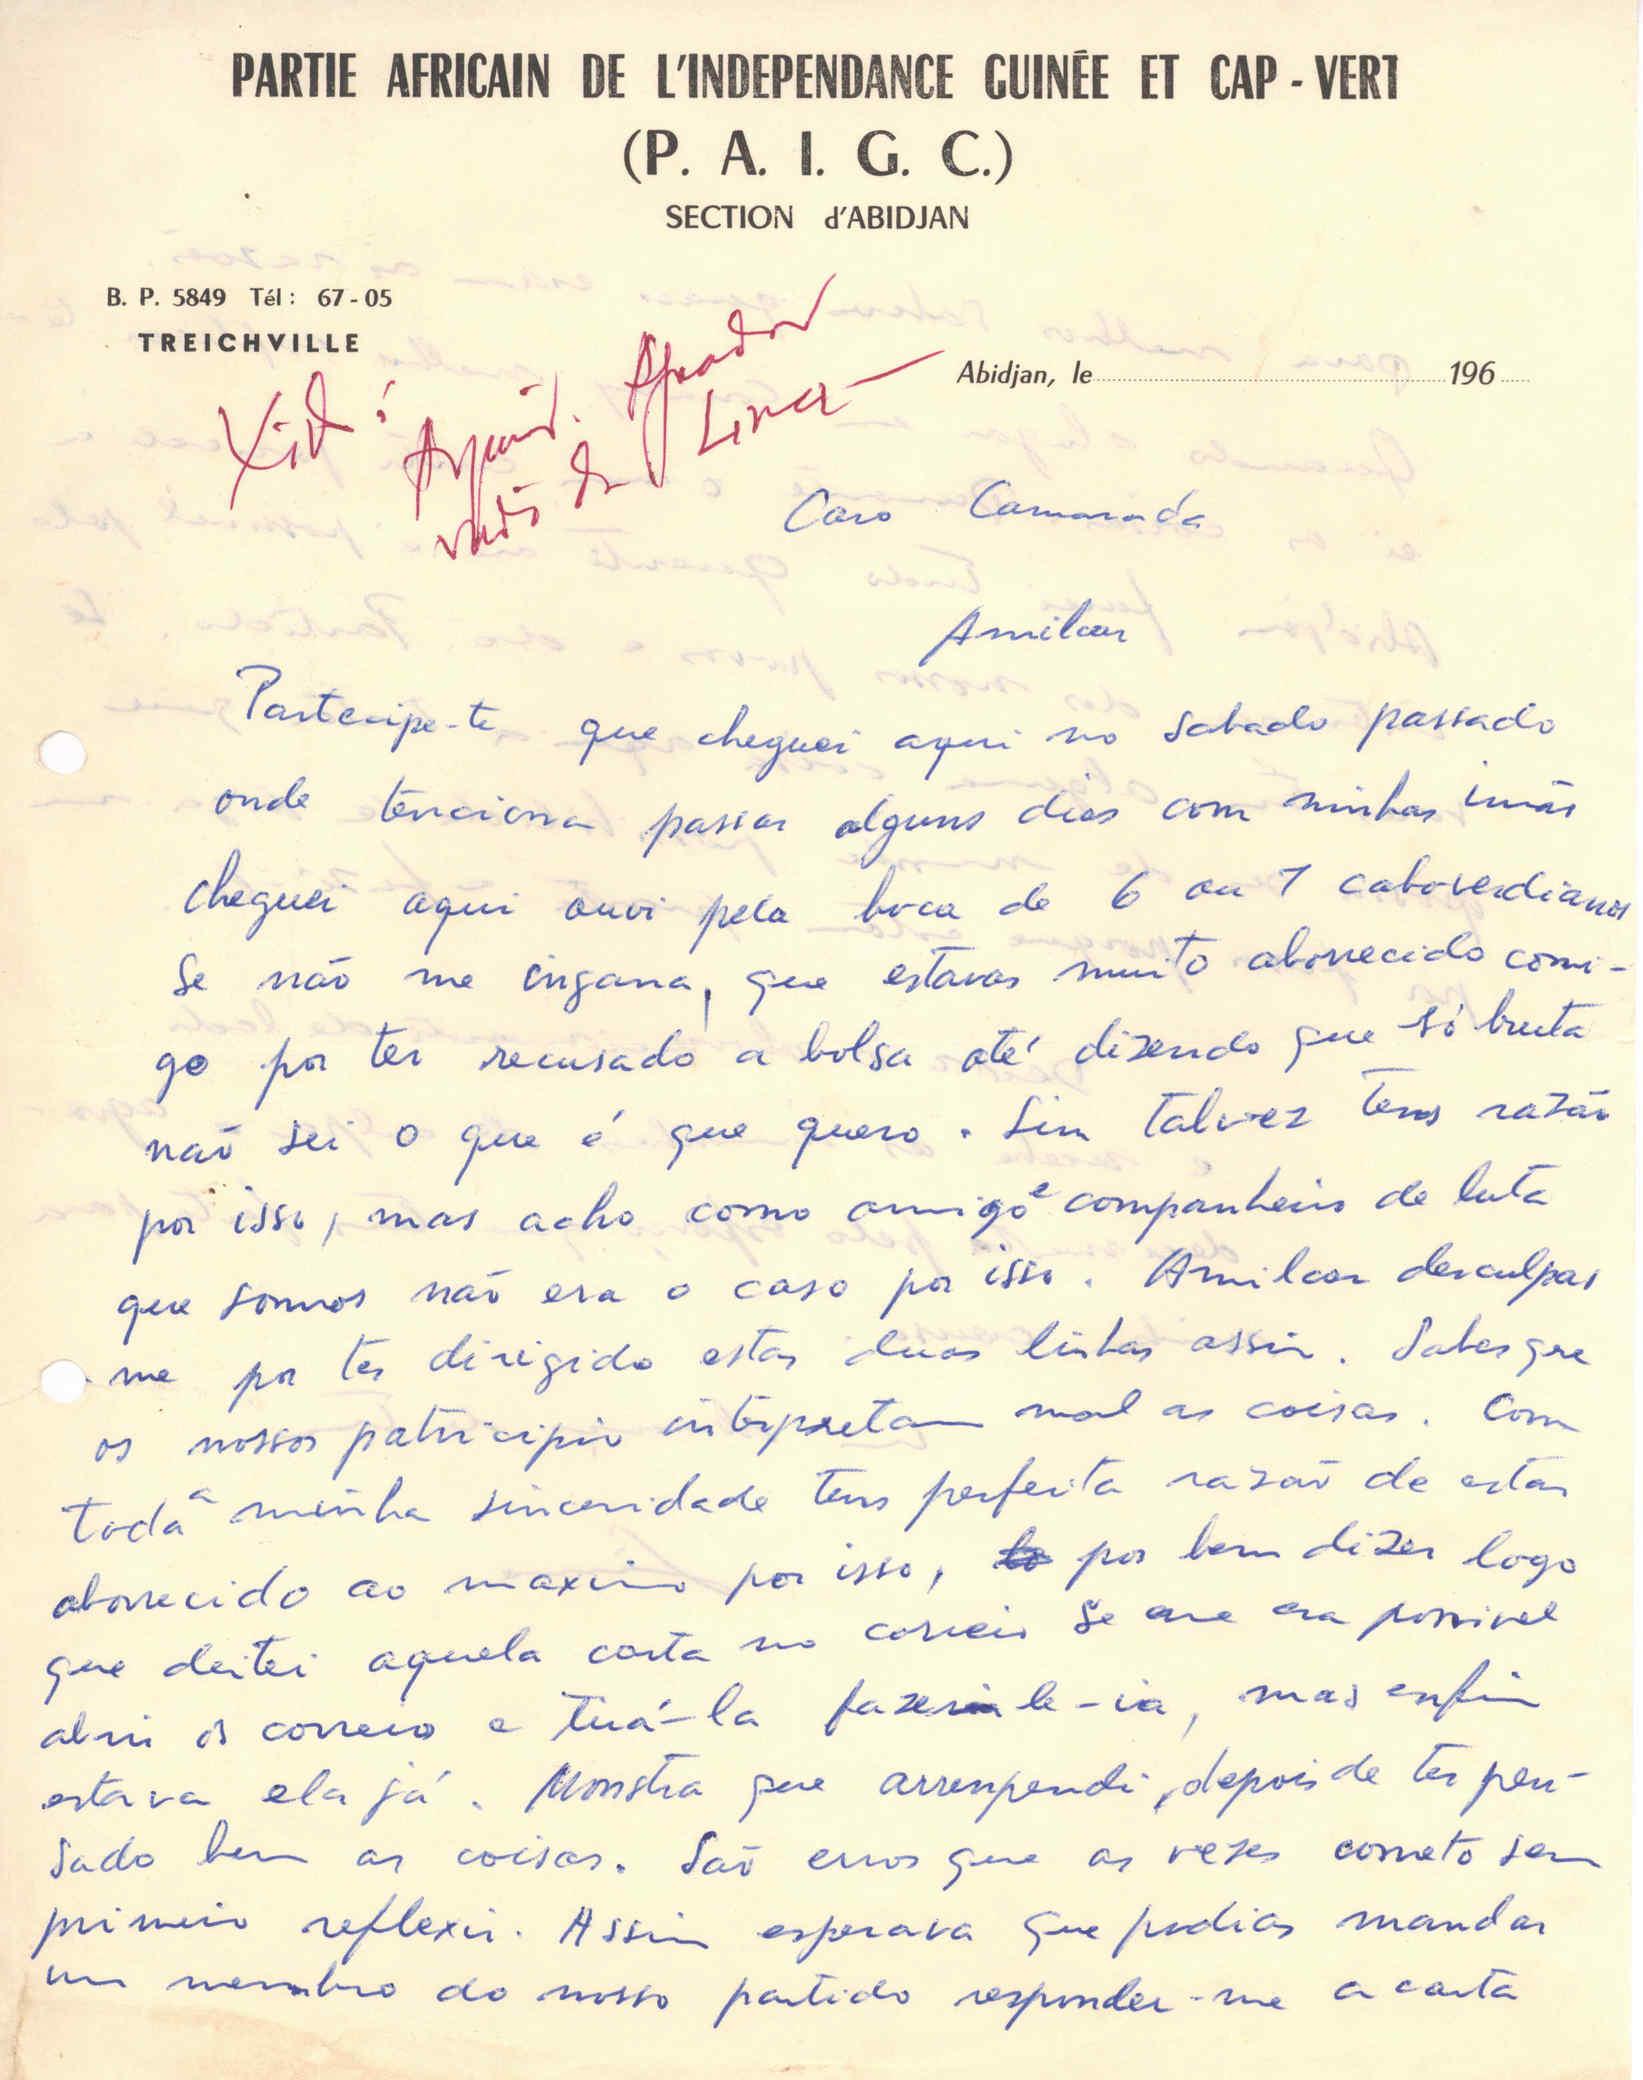 PARTIE AFRICAIN DE L'INDEPENDANCE GUINÉE ET CAP-VERT
(P. A. I. G. C.)
SECTION d'ABIDJAN
B. P. 5849 Tél: 67-05
TREICHVILLE
Abidjan, le 196
Caro Camarada
Amilcar
Partecipe-te que cheguei aqui no sabado passado
onde tenciona passar alguns dias com minhas irmãs
cheguei aqui ouvi pela boca de 6 ou 7 caboverdianos
se não me engana, que estavas muito aborrecido comi-
go por ter recusado a bolsa até dizendo que só bruta
não sei o que é que quero. Sim talvez tens razão
por isso, mas acho como amigo e companheiro de luta
que somos não era o caso por isso. Amilcar desculpas
me por ter dirigido estas duas linhas assim. Sabes que
os nossos patricipio interpretam mal as coisas. Com
toda a minha sinceridade tens perfeita razão de estar
aborrecido ao maximo por isso, por bem dizer logo
que deitei aquela carta no correio se me era possivel
abri os correio e tirá-la fazerle-ia, mas enfim
estava ela já. Monstra que arrenpendi, depois de ter pen-
sado bem as coisas. São erros que as vezes cometo sem
primeiro reflexir. Assim esperava que podias mandar
um membro do nosso partido responder-me a carta